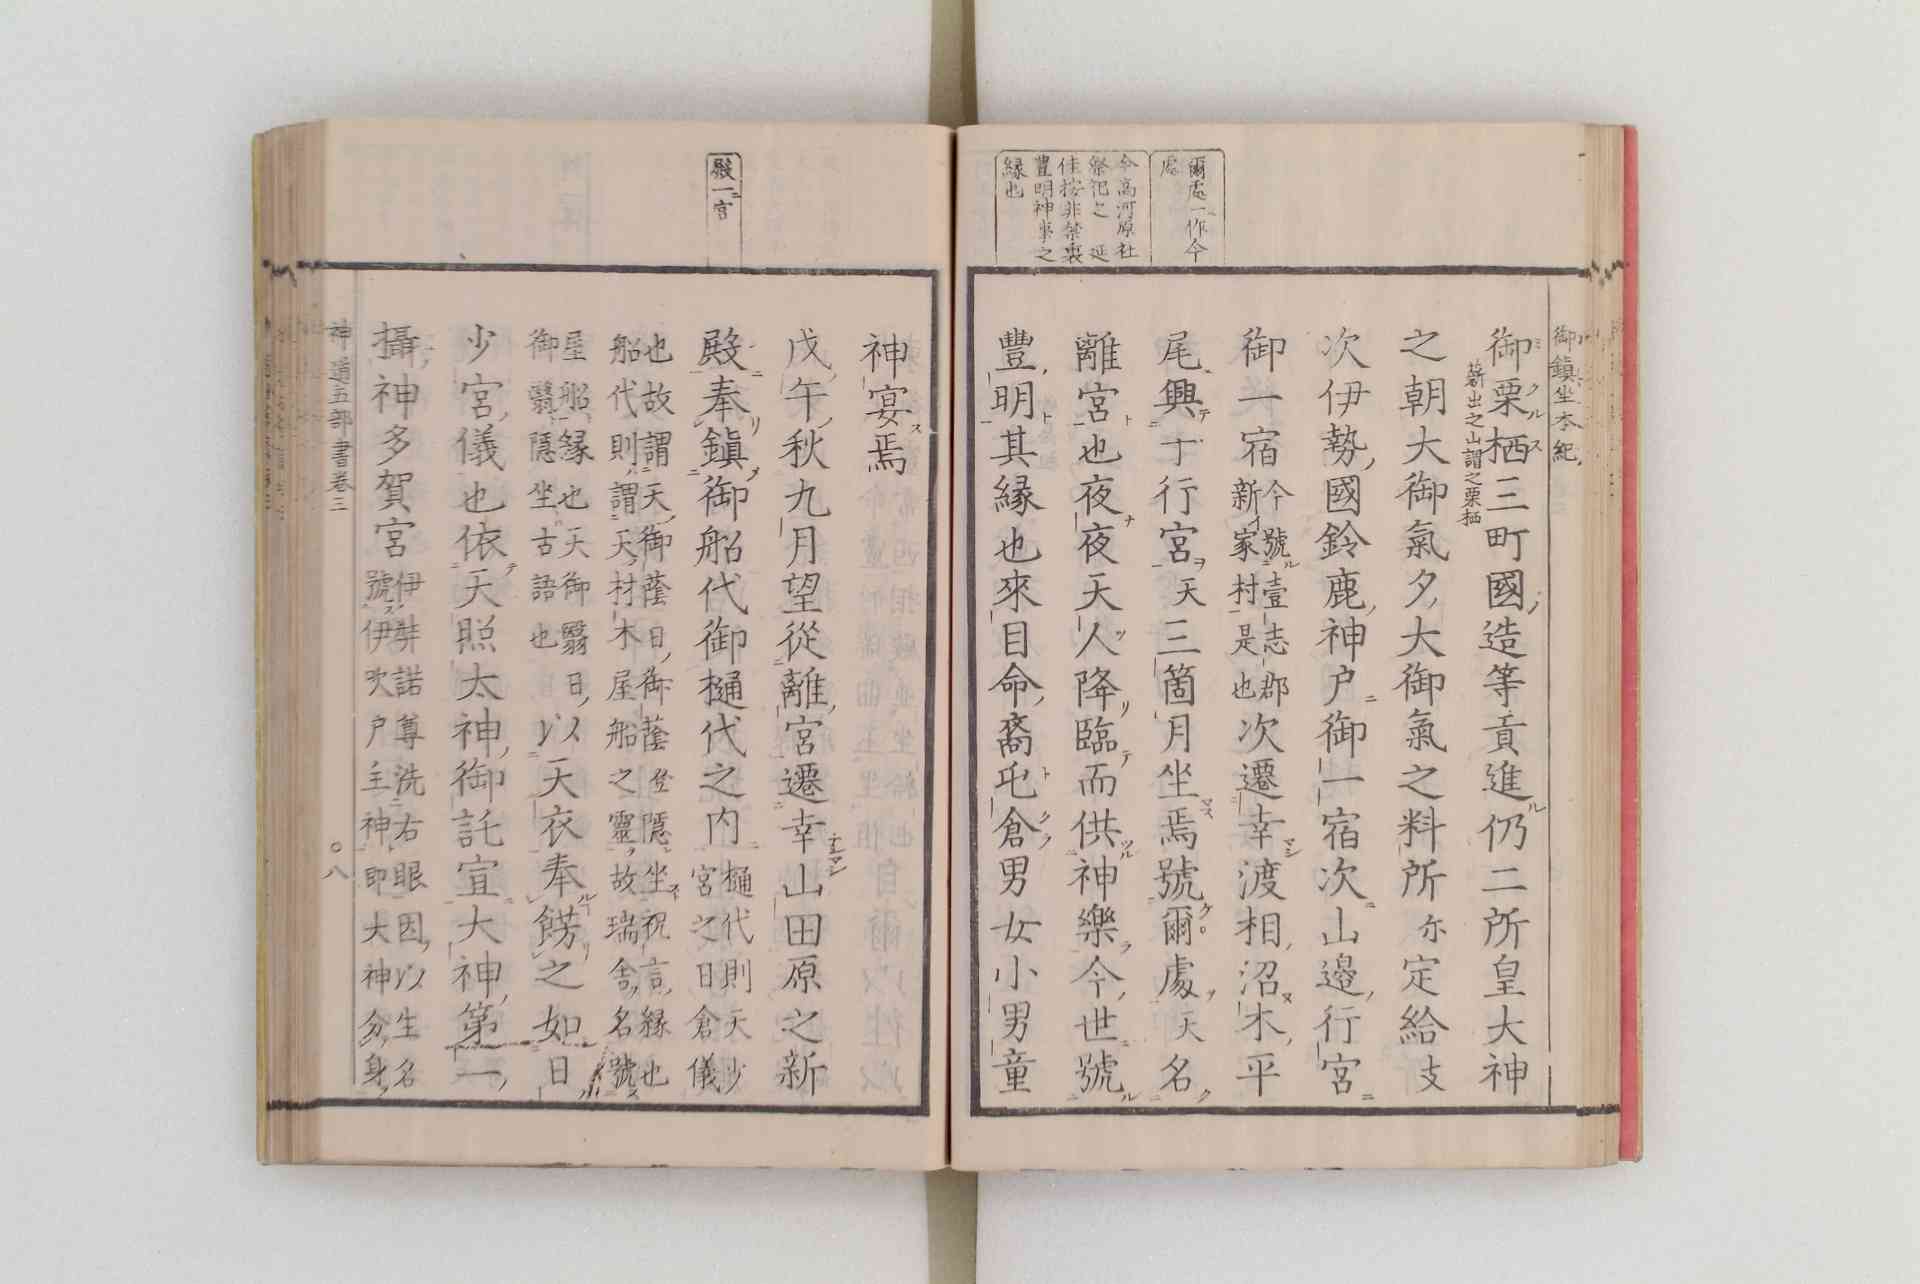 御鎮坐本紀
爾處一作今
處
今高河原社
祭祀之延
佳按非禁裏
豊明神事之
縁也
御栗栖三町國造等貢進仍二所皇大神
薪出之山謂之栗栖
之朝大御氣夕大御氣之料所尓定給支
次伊勢國鈴鹿神戸御一宿次山邊行宮
御一宿今號壹志郡新家村是也次遷幸渡相沼木平
尾興于行宮天三箇月坐焉號爾處天名
離宮也夜夜天人降臨而供神樂今世號
豐明其縁也來目命裔屯倉男女小男童
殿一宮
神宴焉
戊午秋九月望從離宮遷幸山田原之新
殿奉鎮御船代御樋代之内樋代則天少宮之日倉儀
也故謂天御蔭日御蔭登隠坐祝言縁也
船代則謂天材木屋船之靈故瑞舎名號
屋船縁也天御翳日以天衣奉餝之如日
御翳隠坐古語也
少宮儀也依天照太神御託宣大神第一
攝神多賀宮伊弉諾尊洗右眼因以生名號伊吹戸主神即大神分身
神道五部書巻三
○八